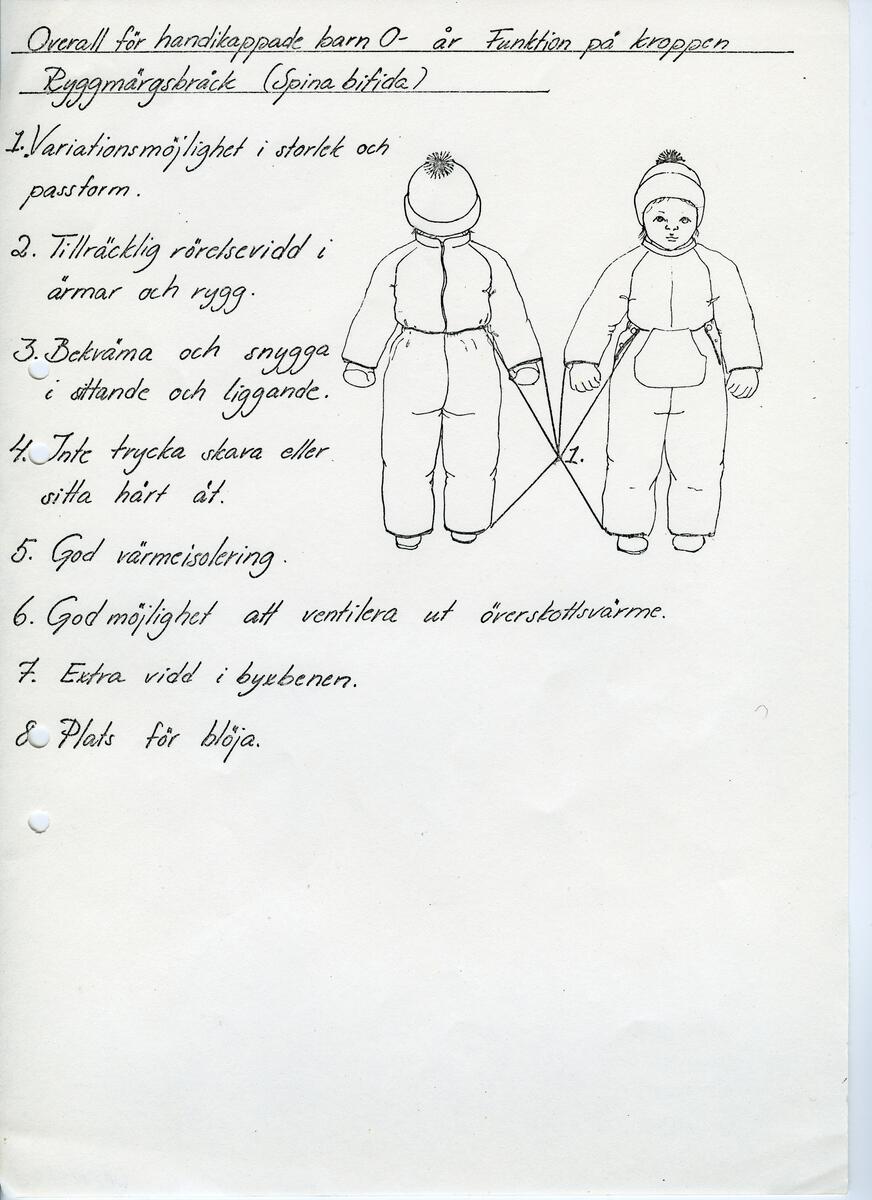 Overall för handikappade barn 0- år Funktion på kroppen
Ryggmärgsbråck (Spina bifida)
1. Variationsmöjlighet i storlek och
passform.
2. Tillräcklig rörelsevidd i
ärmar och rygg.
3. Bekväma och snygga
i sittande och liggande.
4. Inte trycka skava eller
sitta hårt åt.
1.
5. God värmeisolering.
6. God möjlighet att ventilera ut överskottsvärme.
7. Extra vidd i byxbenen.
8 Plats för blöja.